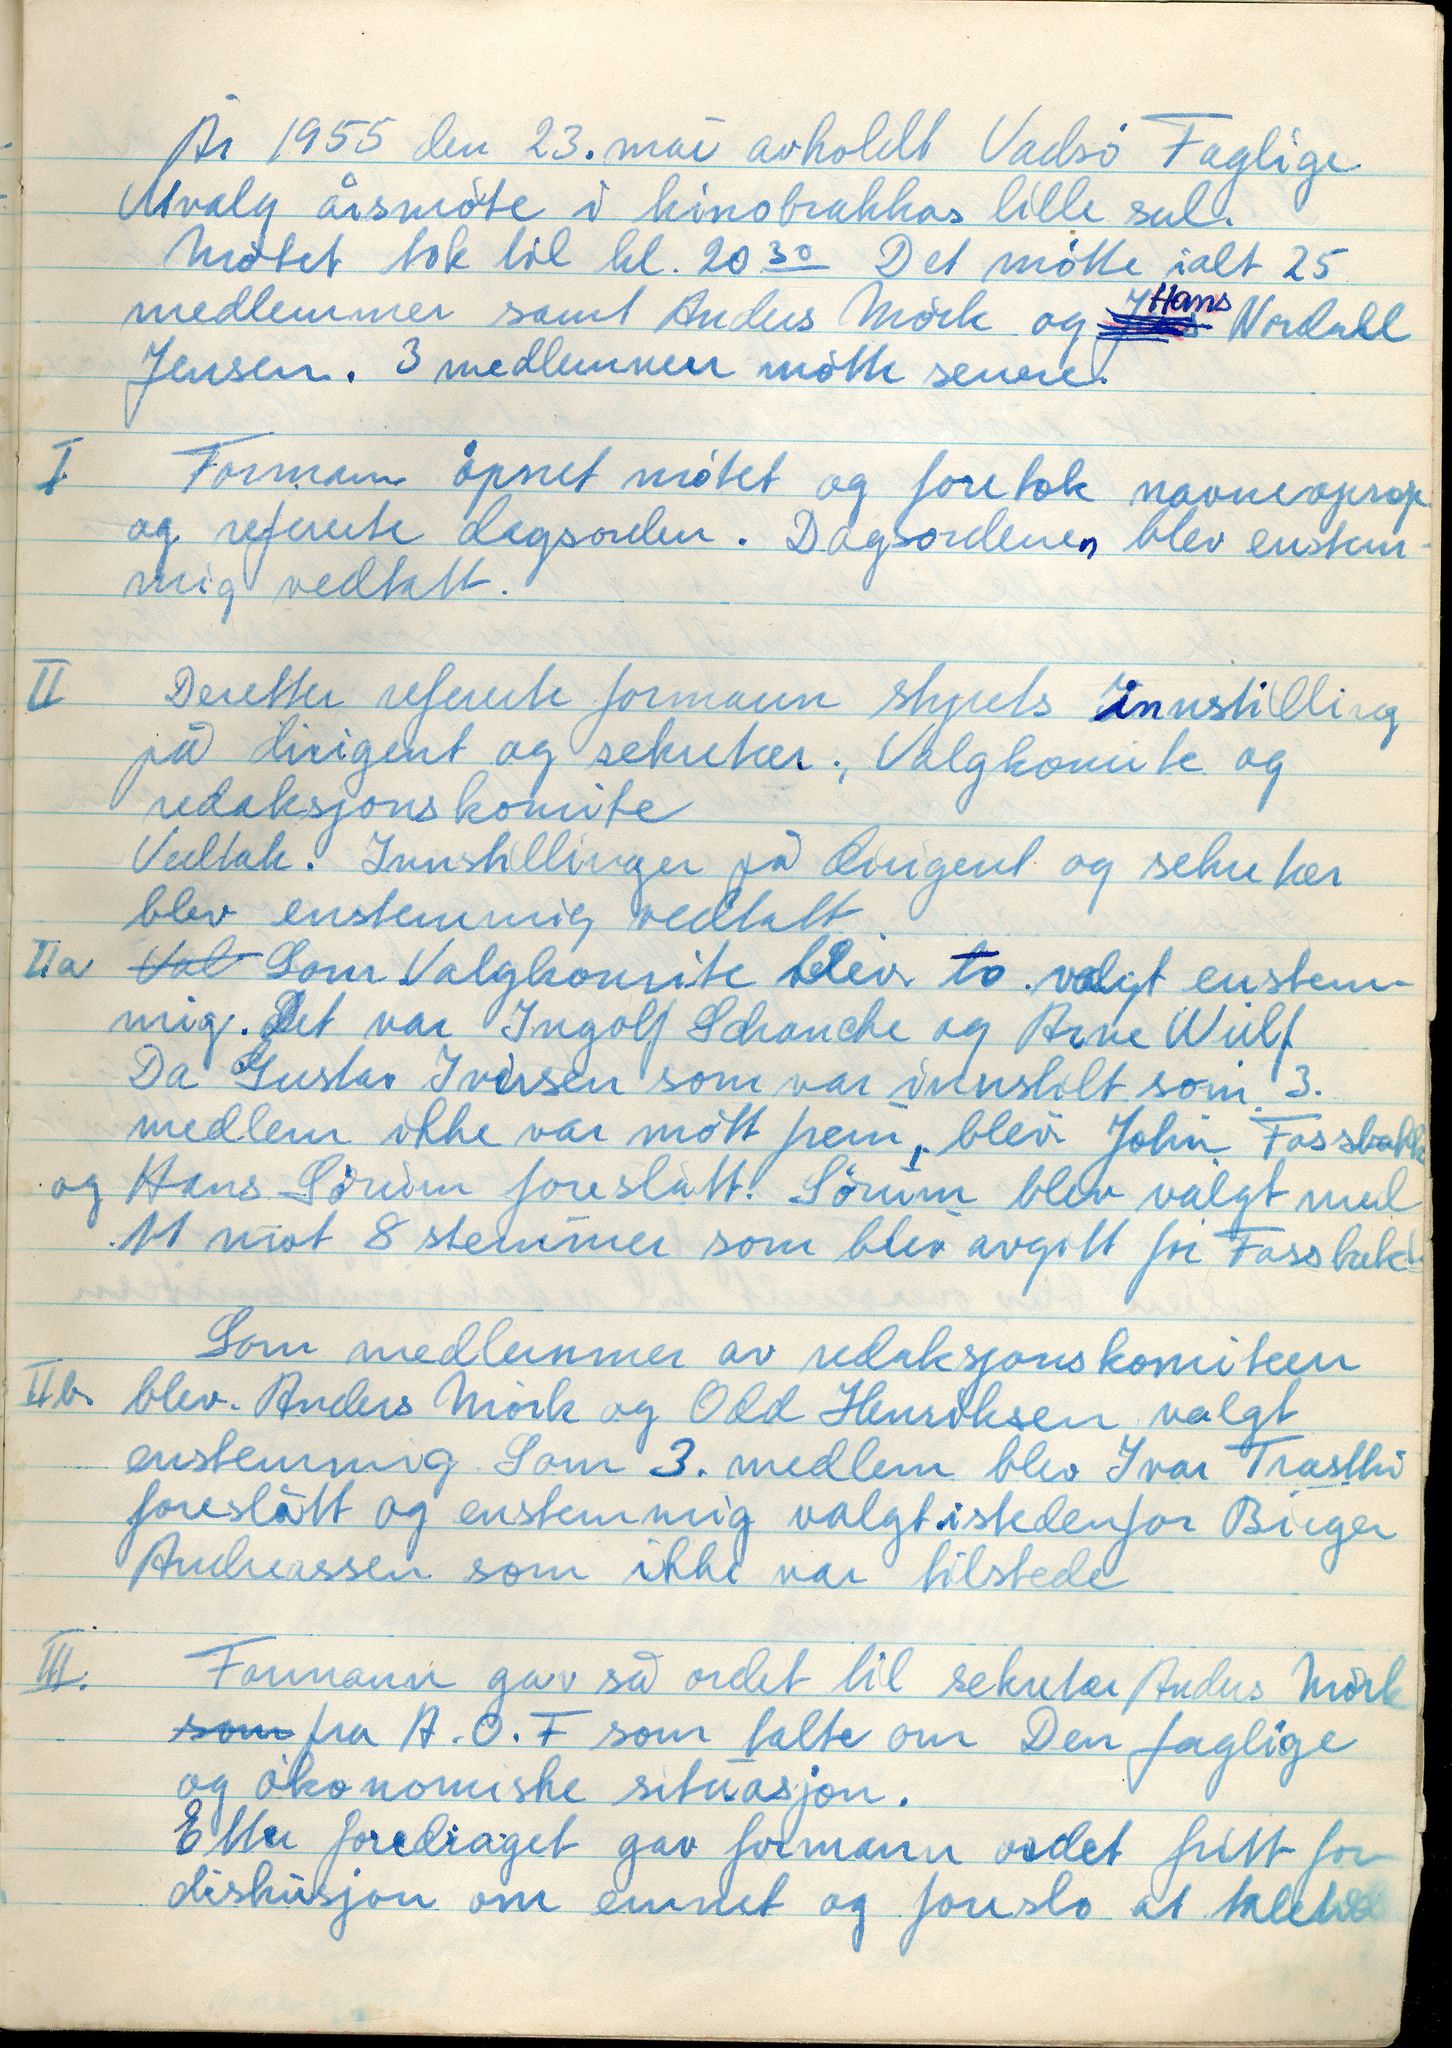 År 1955 den 23. mai avholdt Vadsö Faglige
Utvalg årsmöte i kinobrakkas lille sal.
Mötet tok til kl. 20 30 Det mötte ialt 25
medlemmer samt Anders Mörk og Hans Nordahl
Jensen. 3 medlemmer mötte senere.
I. Formann åpnet mötet og foretok navneoprop
og referete dagsorden. Dagsordenen blev enstem-
mig vedtatt.
II Deretter referete formann styrets Innstilling
på dirigent og sekretær., Valgkomite og
redaksjonskomite
Vedtak. Innstillinger på dirigent og sekretær
blev enstemmig vedtatt
IIa Val Som Valgkomite blev to valgt enstem-
mig. Det var Ingolf Schanche og Arne Wulf
Da Gustav Iversen som var innstilt som 3.
medlem ikke var mött frem, blev John Fossbakk
og Hans Sörum foreslått. Sörum blev valgt med
11 mot 8 stemmer som blev avgitt for Fossbakk
Som medlemmer av redaksjonskomiteen
IIb. blev Anders Mörk og Odd Henriksen valgt
enstemmig Som 3. medlem blev Ivar Trasthi
foreslått og enstemmig valgt istedenfor Birger
Andreassen som ikke var tilstede
III. Formann gav så ordet til sekretær Anders Mörk
som fra A.O.F som talte om Den faglige
og ökonomiske situasjon.
Etter foredraget gav formann ordet fritt for
diskusjon om emnet og foreslo at